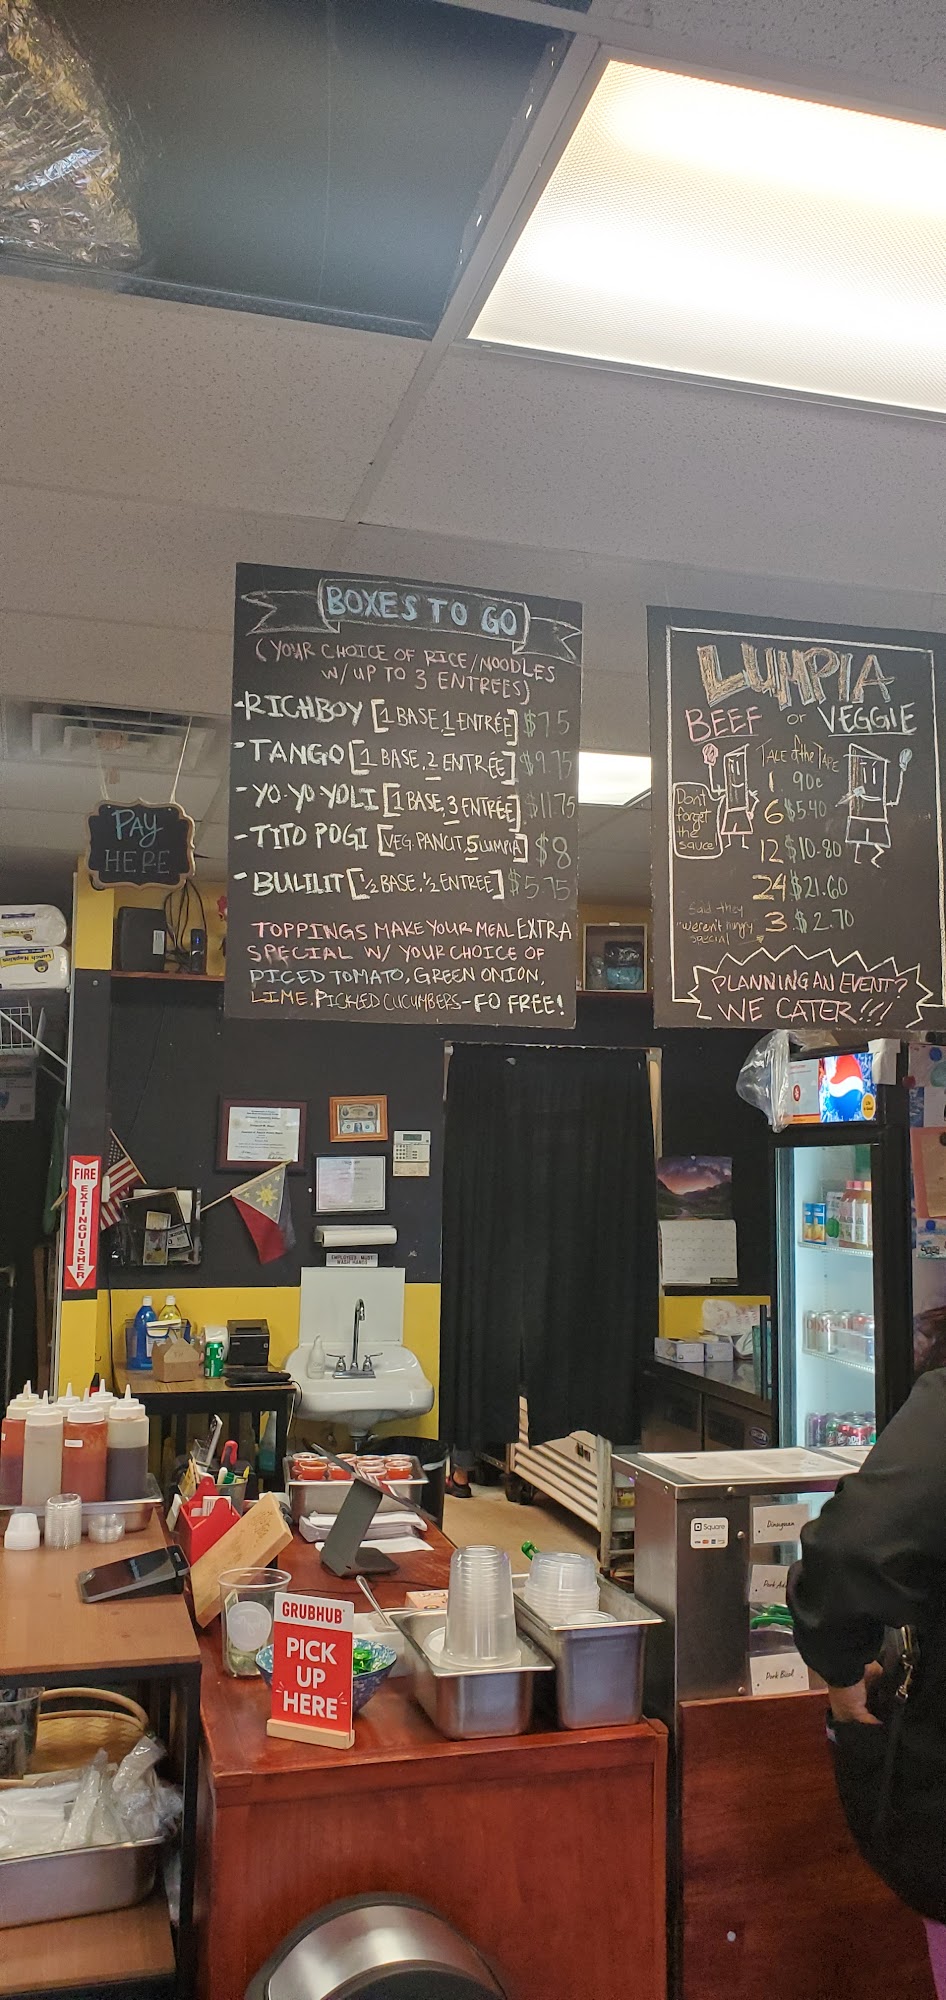 BOXES TO GO
(YOUR CHOICE OF RICE/NOODLES
W/UP TO 3 ENTREES)
-RICHBOY [1 BASE, 1 ENTRÉE] $7.5
-TANGO [1 BASE, 2 ENTRÉE] $9.75
-YO-YO YOLI [1 BASE, 3 ENTRÉE] $11.75
-TITO POGI [VEG. PANCIT, 5 LUMPIA] $8
-BULILIT [½ BASE, ½ ENTREE] $5.75
TOPPINGS MAKE YOUR MEAL EXTRA
SPECIAL W/ YOUR CHOICE OF
DICED TOMATO, GREEN ONION,
LIME, PICKED CUCUMBERS-FO FREE!
LUMPIA
BEEF or VEGGIE
TALE of the TAPE
1 90¢
6 $5.40
12 $10.80
24 $21.60
3 $2.70
Don't
forget
the
sauce!
Said they
weren't hungry
special
PLANNING AN EVENT?
WE CATER!!!
PAY
HERE
FIRE
EXTINGUISHER
EMPLOYEES MUST
WASH HANDS
Square
Dinuguan
GRUBHUB
PICK
UP
HERE